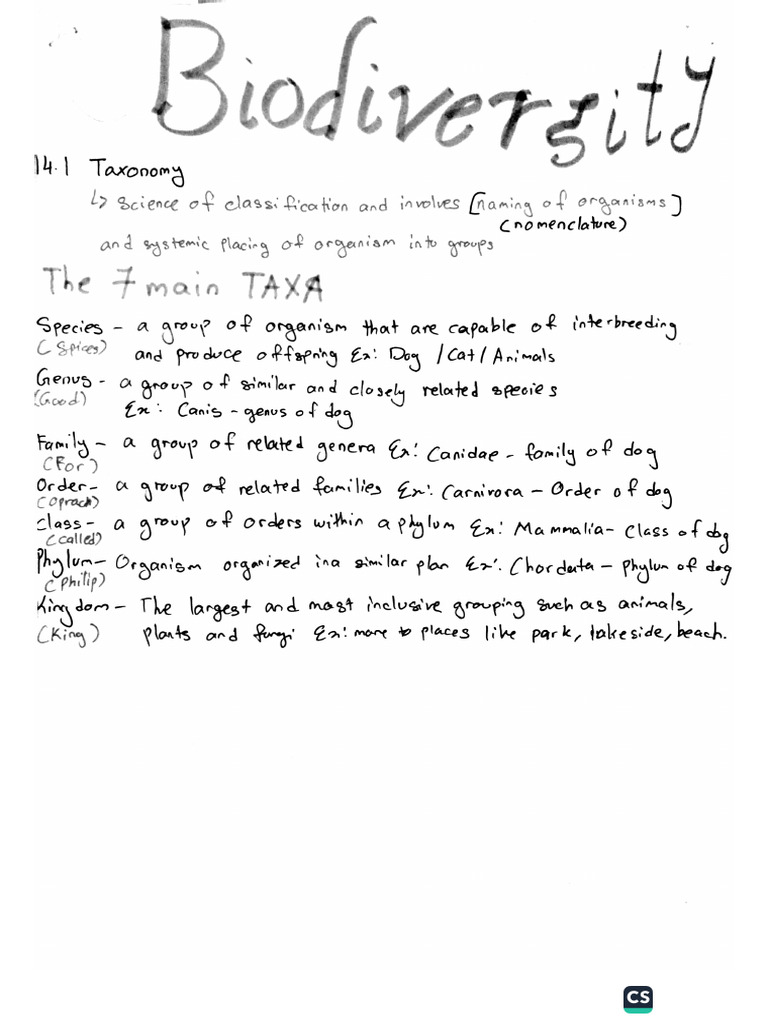 Biodiversity
14.1 Taxonomy
↳ Science of classification and involves [naming of organisms]
(nomenclature)
and systemic placing of organism into groups
The 7 main TAXA
Species - a group of organism that are capable of interbreeding
(Spices) and produce offspring Ex: Dog / Cat / Animals
Genus - a group of similar and closely related species
(Good) Ex: Canis - genus of dog
Family - a group of related genera Ex: Canidae - family of dog
(For)
Order - a group of related families Ex: Carnivora - Order of dog
(Oprach)
Class - a group of orders within a phylum Ex: Mammalia - Class of dog
(called)
Phylum - Organism organized in a similar plan Ex: Chordata - phylum of dog
(Philip)
Kingdom - The largest and most inclusive grouping such as animals,
(King) plants and fungi Ex: more to places like park, lakeside, beach.
CS